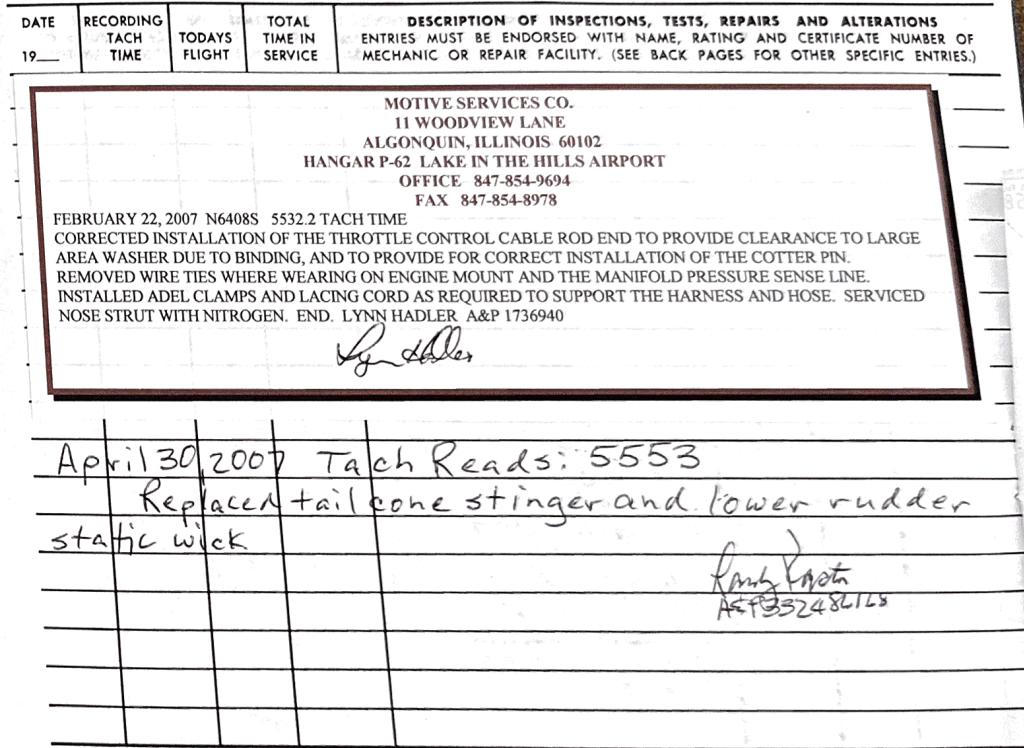 DATE RECORDING TOTAL DESCRIPTION OF INSPECTIONS, TESTS, REPAIRS AND ALTERATIONS
TACH TODAYS TIME IN ENTRIES MUST BE ENDORSED WITH NAME, RATING AND CERTIFICATE NUMBER OF
19__ TIME FLIGHT SERVICE MECHANIC OR REPAIR FACILITY. (SEE BACK PAGES FOR OTHER SPECIFIC ENTRIES.)
MOTIVE SERVICES CO.
11 WOODVIEW LANE
ALGONQUIN, ILLINOIS 60102
HANGAR P-62 LAKE IN THE HILLS AIRPORT
OFFICE 847-854-9694
FAX 847-854-8978
FEBRUARY 22, 2007 N6408S 5532.2 TACH TIME
CORRECTED INSTALLATION OF THE THROTTLE CONTROL CABLE ROD END TO PROVIDE CLEARANCE TO LARGE
AREA WASHER DUE TO BINDING, AND TO PROVIDE FOR CORRECT INSTALLATION OF THE COTTER PIN.
REMOVED WIRE TIES WHERE WEARING ON ENGINE MOUNT AND THE MANIFOLD PRESSURE SENSE LINE.
INSTALLED ADEL CLAMPS AND LACING CORD AS REQUIRED TO SUPPORT THE HARNESS AND HOSE. SERVICED
NOSE STRUT WITH NITROGEN. END. LYNN HADLER A&P 1736940
Lynn Hadler
April 30, 2007 Tach Reads: 5553
Replaced tail cone stinger and lower rudder
static wick
Randy
A&P